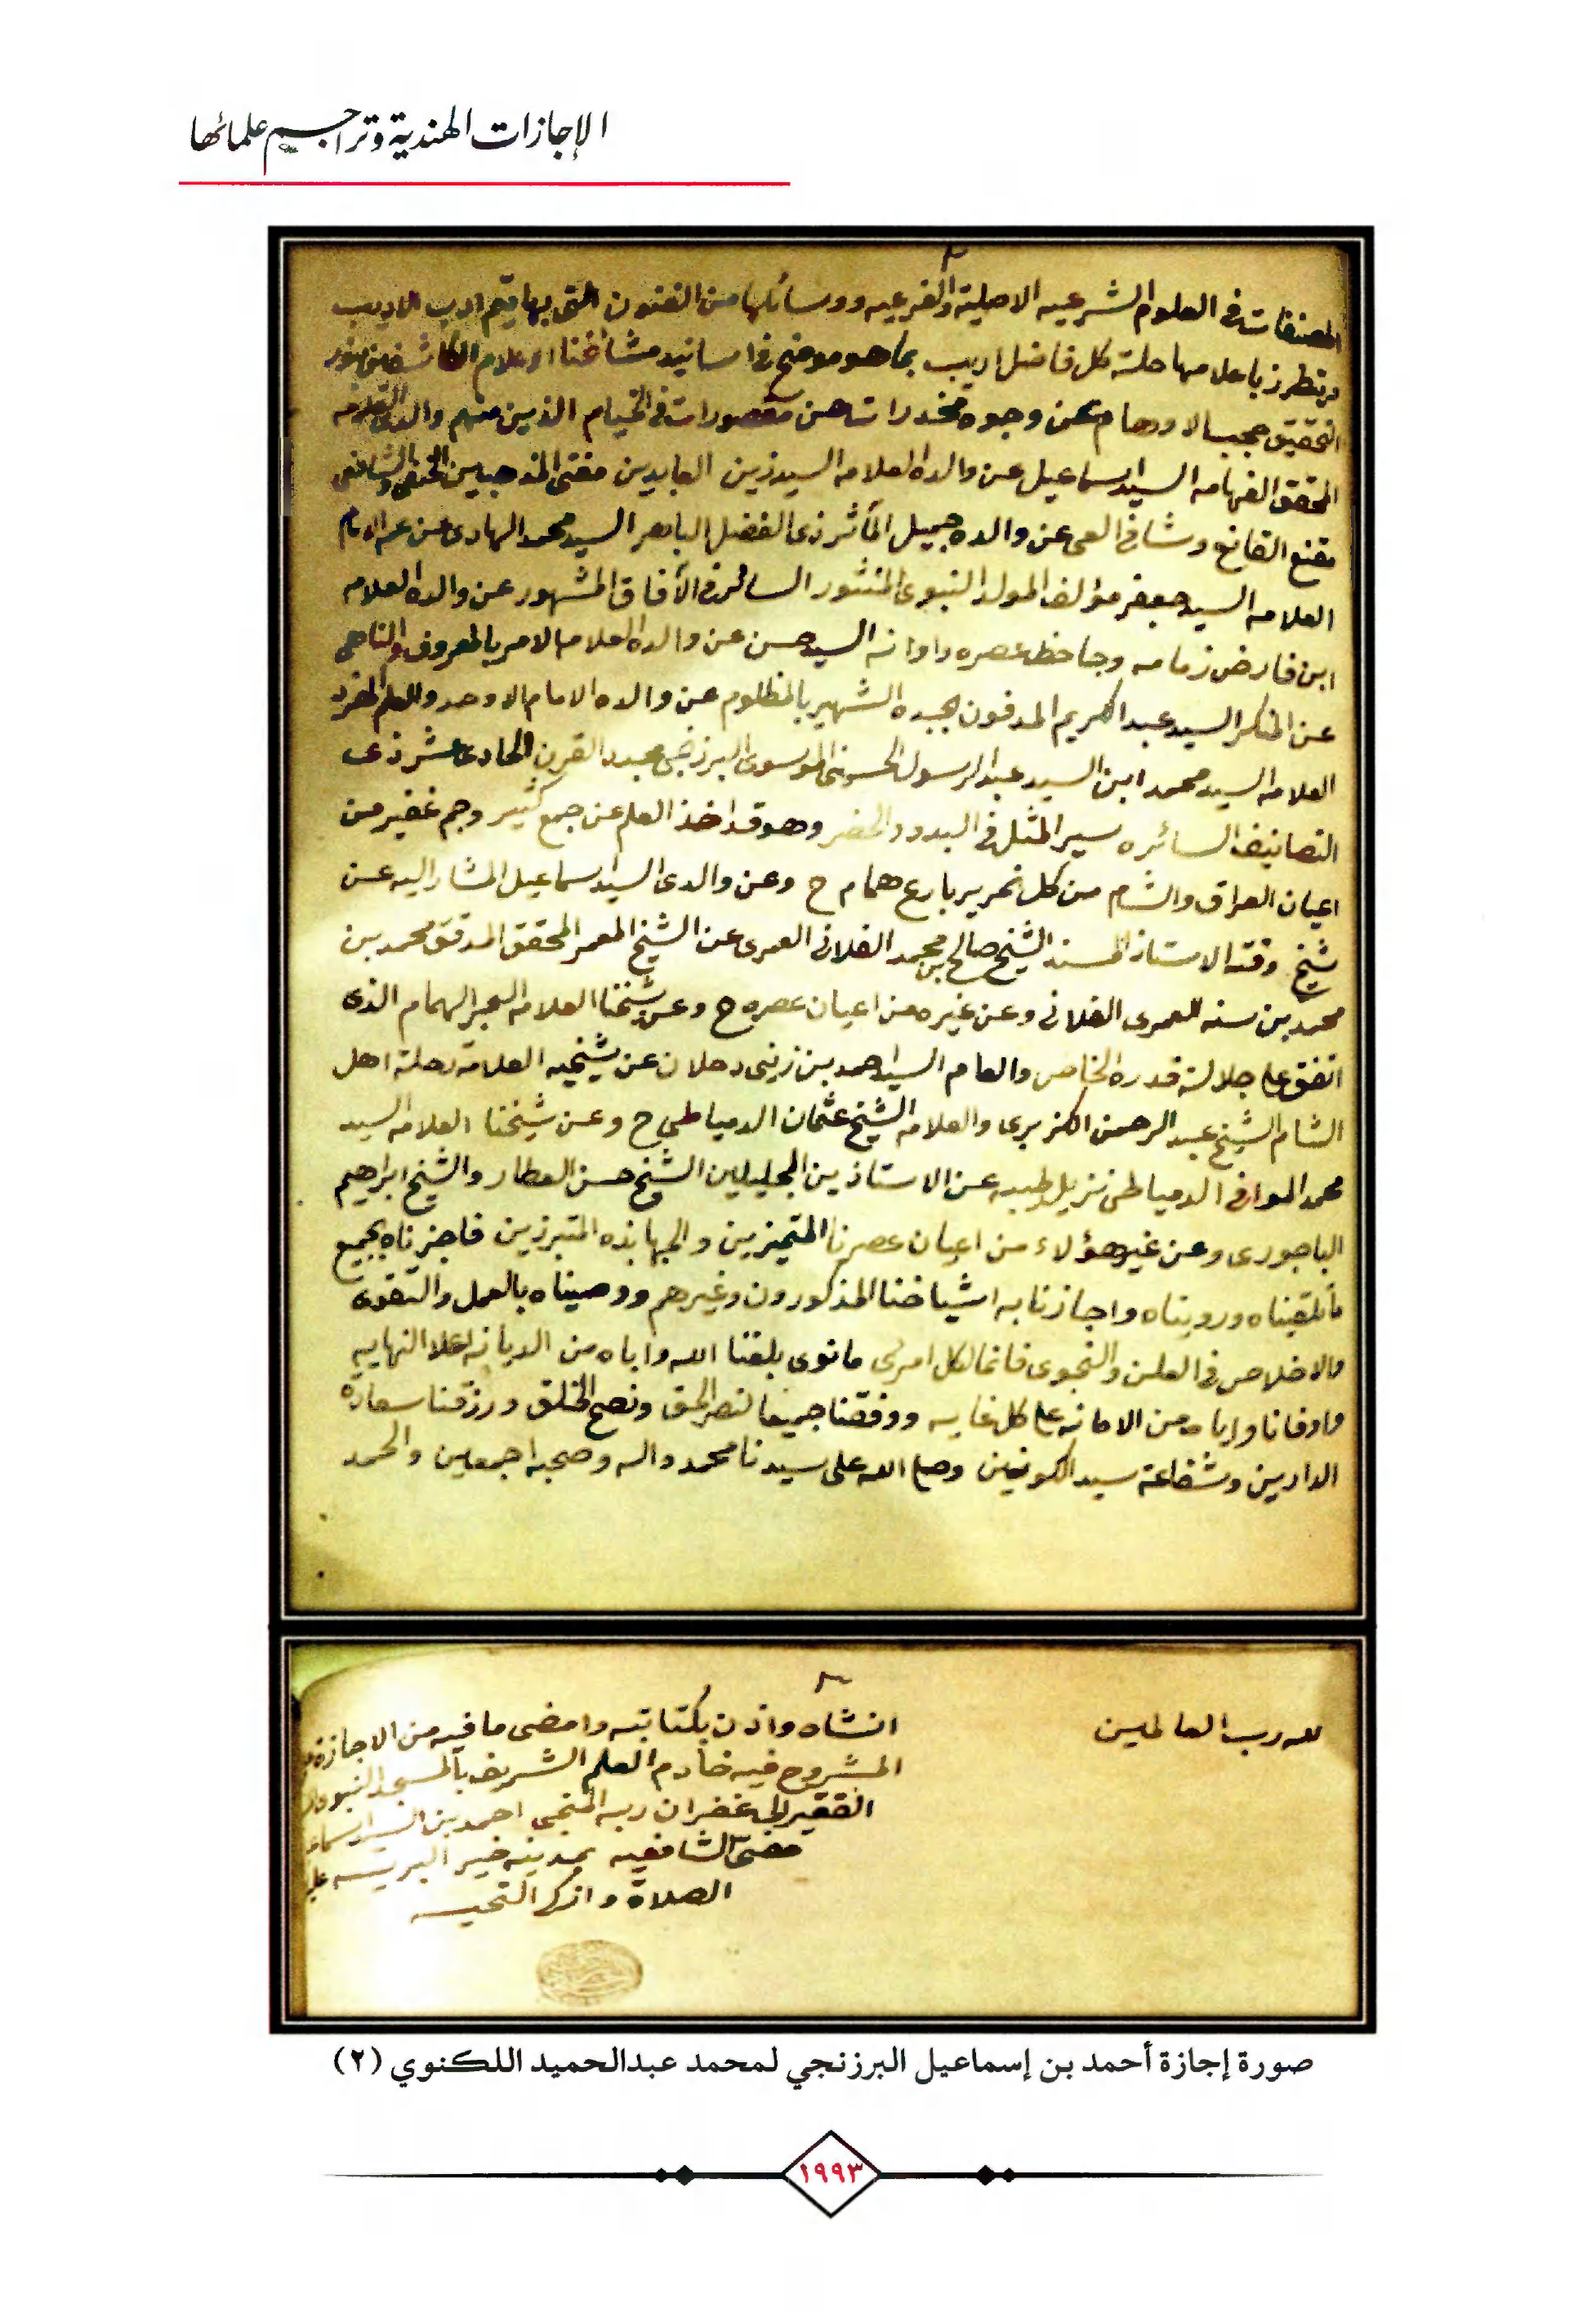 الإجازات الهندية وتراجيم علمائها
٣
المصنفات في العلوم الشرعيه الاصليه والفرعيه ووسائلها من الفنون التى بها يقيم ادب الاديب
ويتطرز باعلامها حلة كل فاضل اريب بما هو موضح في اسانيد مشائخنا الاعلام الكاشفين بنور
التحقيق حجب الاوهام عن وجوه مخدرات هن مقصورات في الخيام الذين منهم والدى العلامه
المحقق الفهامه السيد اسماعيل عن والده العلامه السيد زين العابدين مفتى المذهبين الحنفى والشافعى
مقنع القانع وشافى العى عن والده جميل المآثر ذى الفضل الباهر السيد محمد الهادى عن عمه الامام
العلامه السيد جعفر مؤلف المولد النبوى المنثور السائر في الآفاق المشهور عن والده العلامه
ابن فارض زمامه وجاحظ عصره واوانه السيد حسن عن والده العلامه الامر بالمعروف والناهى
عن المنكر السيد عبد الكريم المدفون بجده الشهير بالمظلوم عن والده الامام الاوحد والعلم المفرد
العلامه السيد محمد ابن السيد عبد الرسول الحسينى الموسوى البرزنجى مجدد القرن الحادى عشر ذى
التصانيف السائره سير المثل في البدو والحضر وهو قد اخذ العلم عن جمع كثير وجم غفير من
اعيان العراق والشام من كل نحرير بارع همام ح وعن والدى السيد اسماعيل المشار اليه عن
شيخ وقته الاستاذ المسند الشيخ صالح بن محمد الفلانى العمرى عن الشيخ المعمر المحقق المدقق محمد بن
محمد بن سنه العمرى الفلانى وعن غيره من اعيان عصره ح وعن شيخنا العلامه الحبر الهمام الذى
اتفق على جلالة قدره الخاص والعام السيد احمد بن زينى دحلان عن شيخيه العلامه رحلة اهل
الشام الشيخ عبد الرحمن الكزبرى والعلامه الشيخ عثمان الدمياطي ح وعن شيخنا العلامه السيد
محمد الموافى الدمياطى نزيل طيبه عن الاستاذين الجليلين الشيخ حسن العطار والشيخ ابراهيم
الباجورى وعن غير هؤلاء من اعيان عصرنا المتميزين والجهابذه المتبرزين فاجزناه بجميع
ما تلقيناه ورويناه واجازنا به اشياخنا المذكورون وغيرهم ووصيناه بالعمل والتقوى
والاخلاص في العلن والنجوى فانما لكل امرئ ما نوى بلغنا الله واياه من الديانه اعلا النهايه
واوفانا واياه من الامانه على كل غايه ووفقنا جميعا لنصر الحق ونصح الخلق ورزقنا سعادة
الدارين وشفاعة سيد الكونين وصلى الله على سيدنا محمد واله وصحبه اجمعين والحمد
لله رب العالمين
انشاه واذن بكتابته وامضى ما فيه من الاجازة
المشروح فيه خادم العلم الشريف بالمسجد النبوى
الفقير الى غفران ربه المنجى احمد بن السيد اسماعيل
مفتى الشافعيه بمدينة خير البريه عليه
الصلاة وازكى التحيه
صورة إجازة أحمد بن إسماعيل البرزنجي لمحمد عبدالحميد اللكنوي (٢)
١٩٩٣